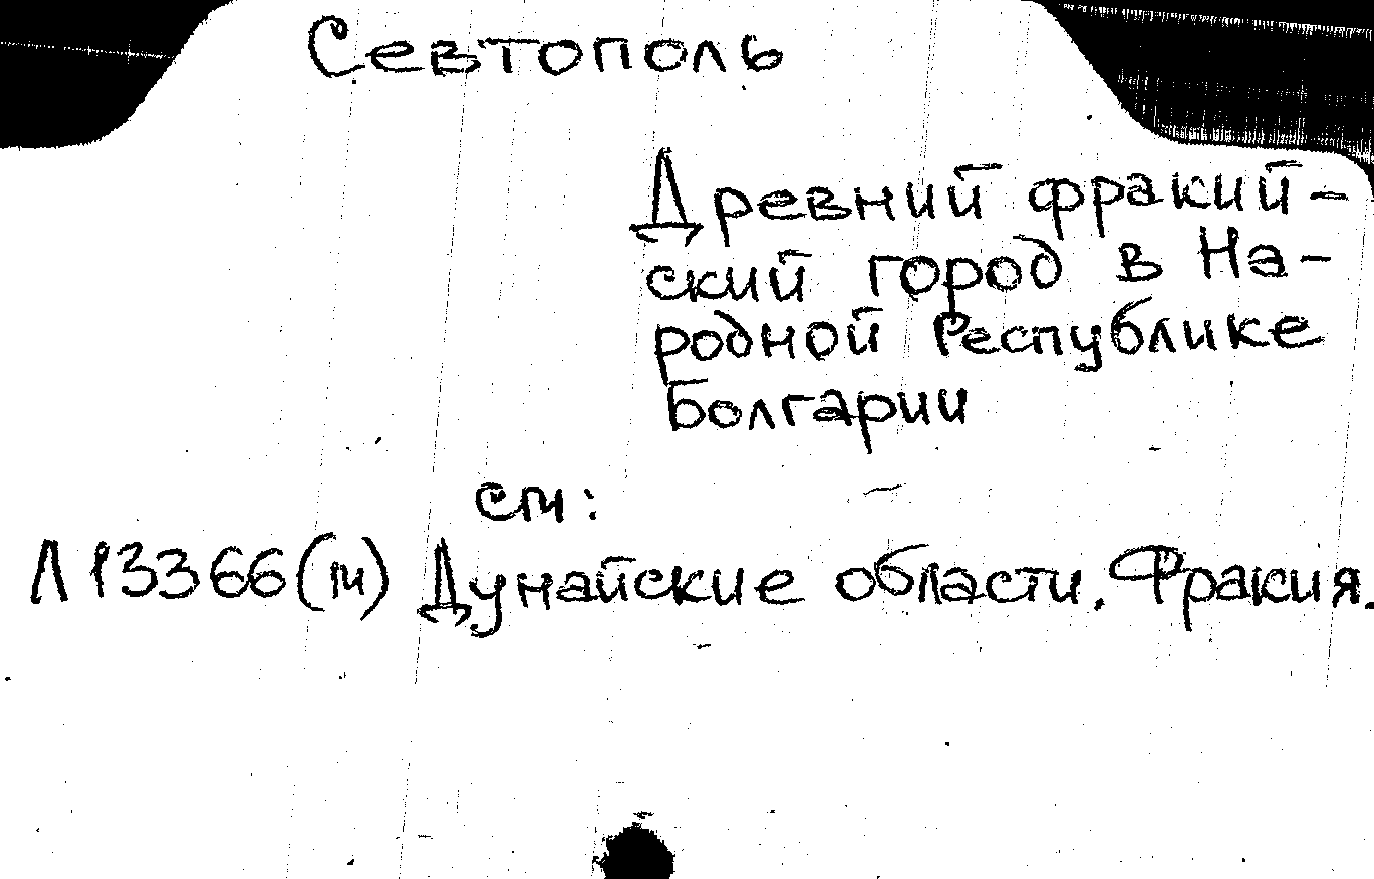 Севтополь
Древний фракий-
ский город в На-
родной Республике
Болгарии
см:
Л 13366(м) Дунайские области. Фракия.